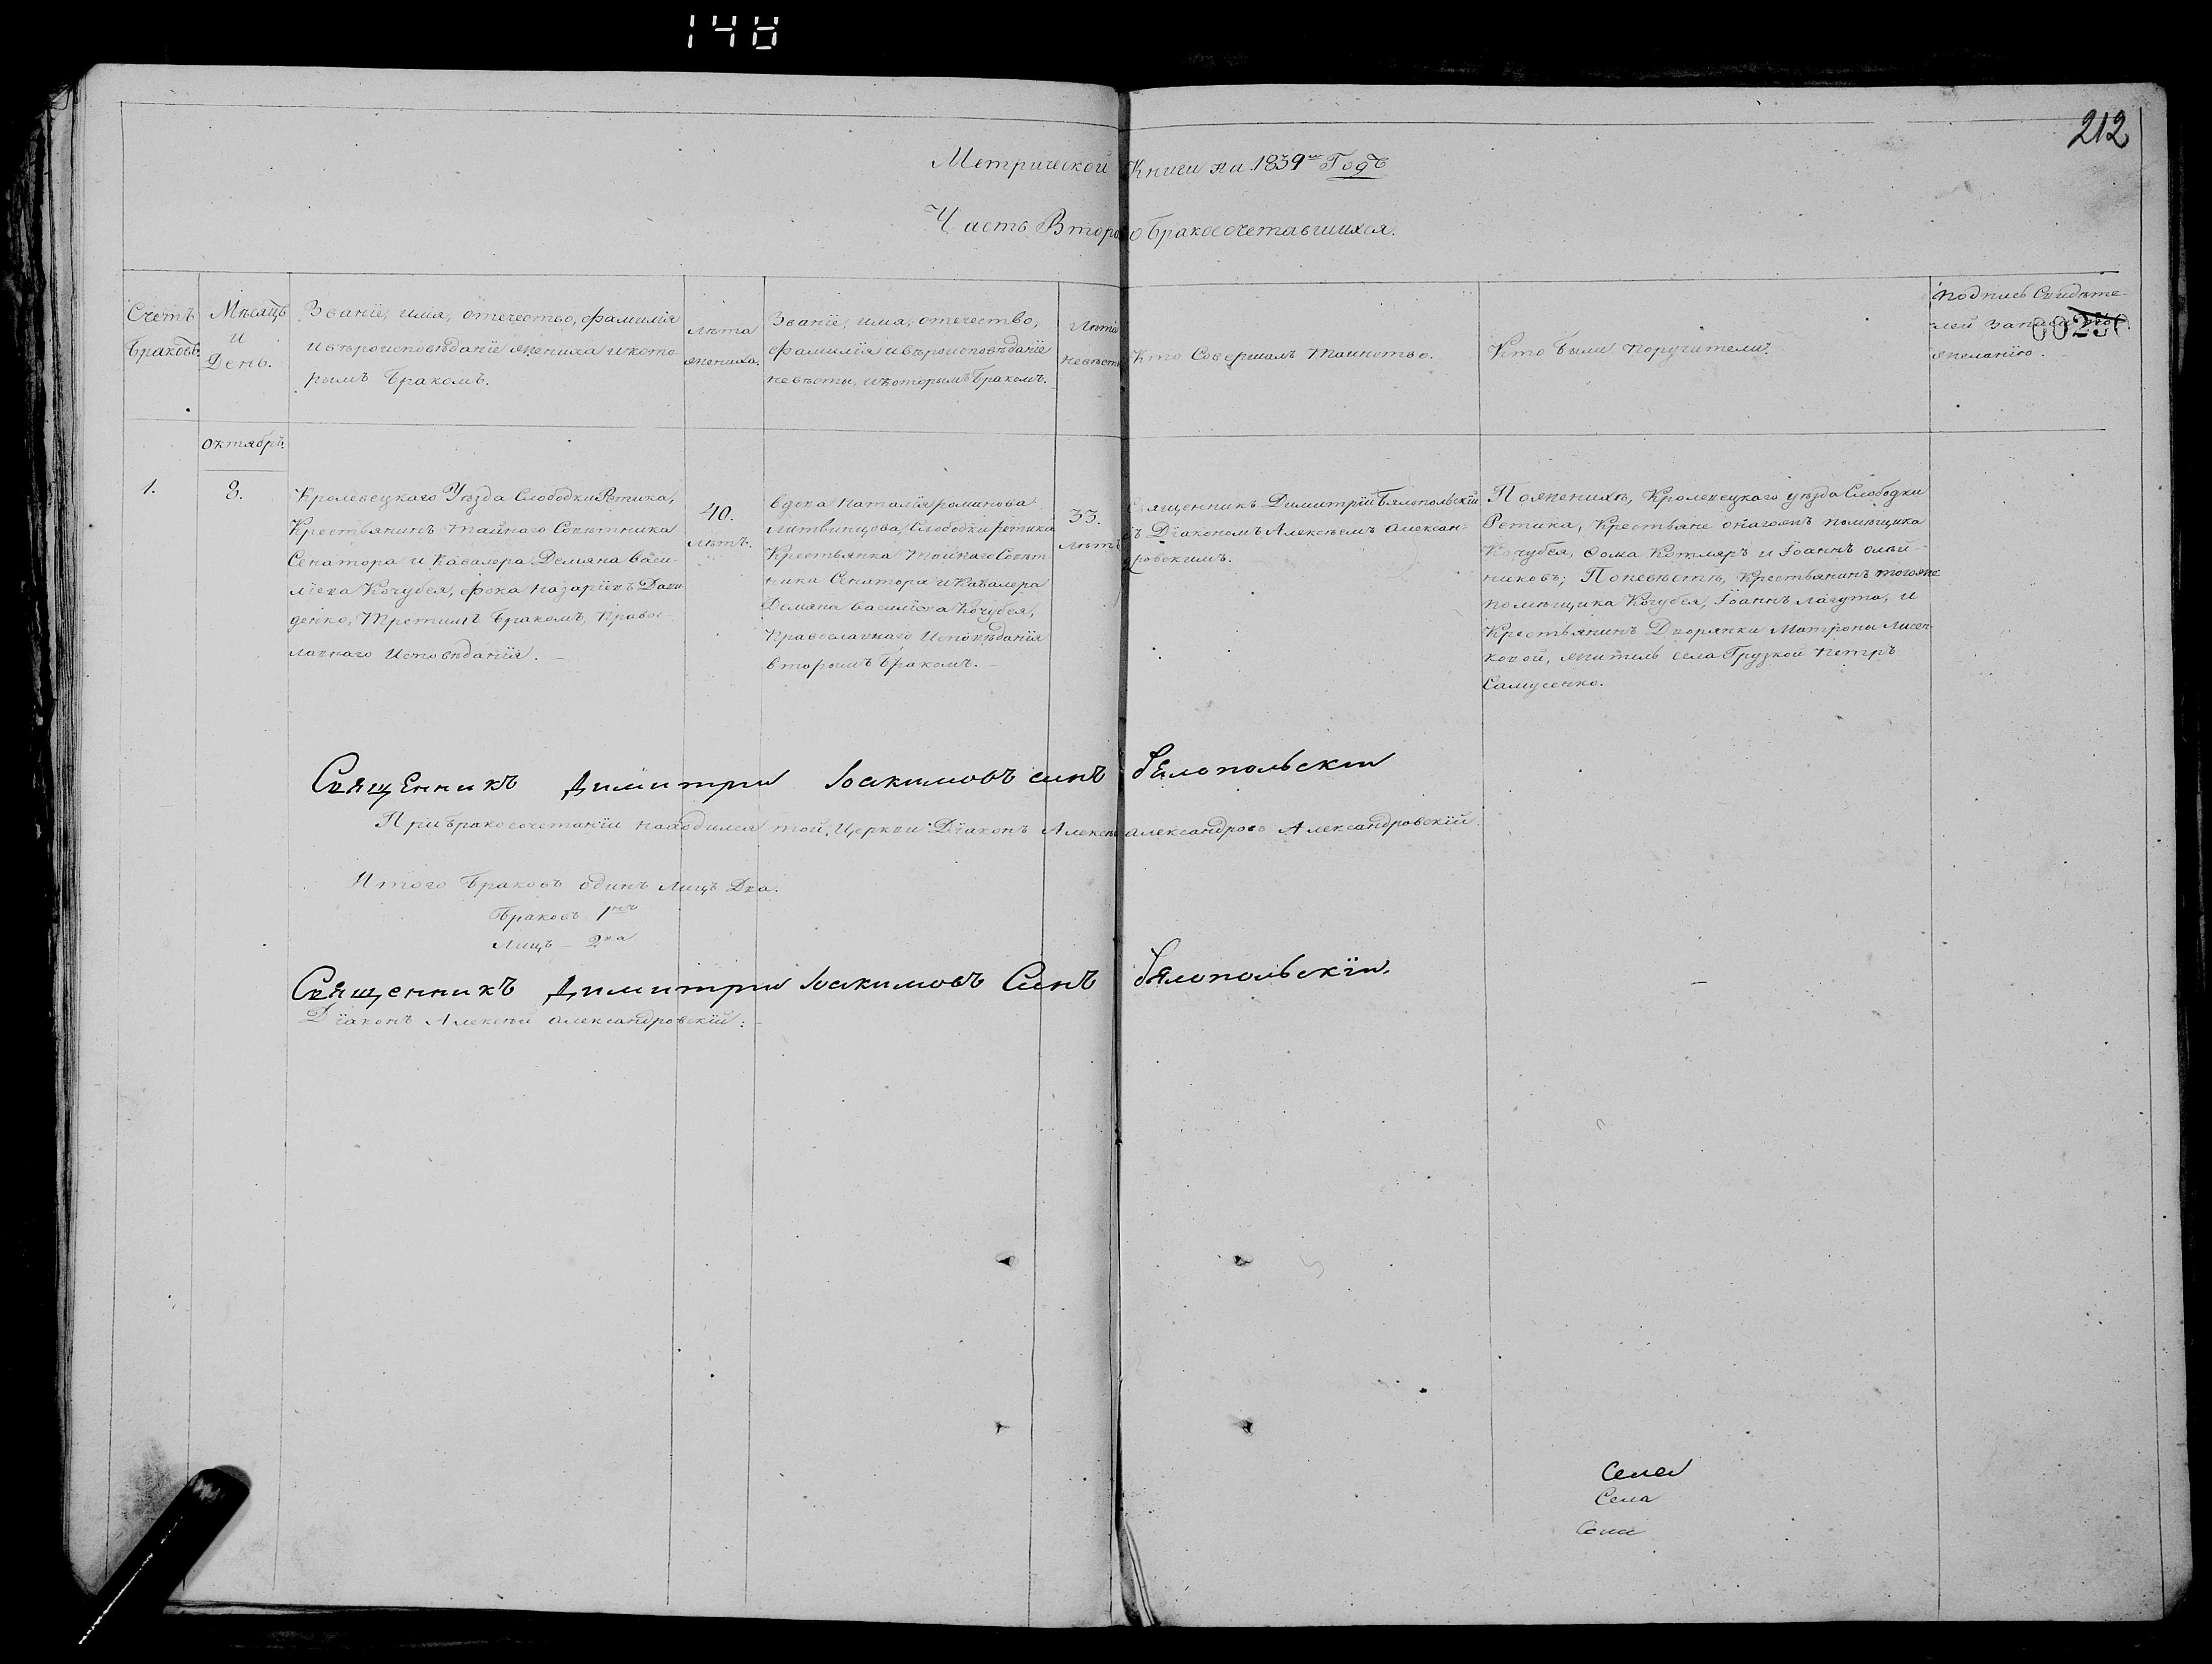 148
212
Метрической Книги на 1839й Годъ
Часть Втора о Бракосочетавшихся.
Счетъ Браковъ.
Мѣсяцъ и День.
Званіе, имя, отечество, фамилія
и вѣроисповѣданіе жениха и кото-
рымъ бракомъ.
Лѣта
жениха.
Званіе, имя, отечество,
фамилія и вѣроисповѣданіе
невѣсты, и которымъ бракомъ.
Лѣта
невѣсты
Кто Совершалъ Таинство.
Кто были поручители.
подпись Свидѣте-
лей записи по
желанію.
00250
Октябрь.
1.
8.
Кролевецкаго Уѣзда Слободки Ретика,
Крестьянинъ Тайнаго Совѣтника
Сенатора и Кавалера Демяна Васи-
ліева Кочубея, Фока Назаріевъ Дави
денко, Третимъ бракомъ, Правос-
лавнаго Исповѣданія.
40.
лѣтъ.
вдова Наталія Романова
Литвинцова, Слободки Ретика
Крестьянка Тайнаго Совѣт
ника Сенатора и Кавалера
Демяна Василіева Кочубея,
Православнаго Исповѣданія
вторымъ бракомъ.
33.
лѣтъ
Священникъ Димитрій Бялопольскій
съ Діакономъ Алексѣемъ Алексан-
дровскимъ.
По женихѣ, Кролевецкаго уѣзда Слободки
Ретика, Крестьяне онагожъ помѣщика
Кочубея, Фома Котляръ и Іоаннъ Олѣй-
никовъ; По невѣстѣ, Крестьянинъ тогоже
помѣщика Кочубея, Іоаннъ Лагута, и
Крестьянинъ Дворянки Матроны Лисен-
ковой, житель села Грузкой Петръ
Самусенко.
Священникъ Димитри Іоакимовъ синъ бялопольскіи
При бракосочетаніи находился той, Церкви Діаконъ Алексѣй Александровъ Александровскій
Итого Браковъ одинъ Лицъ Два.
Браковъ 1нъ
Лицъ – 2ва
Священникъ Димитри Іоакимовъ Синъ бялопольскіи.
Діаконъ Алексѣй Александровскій:
Села
Села